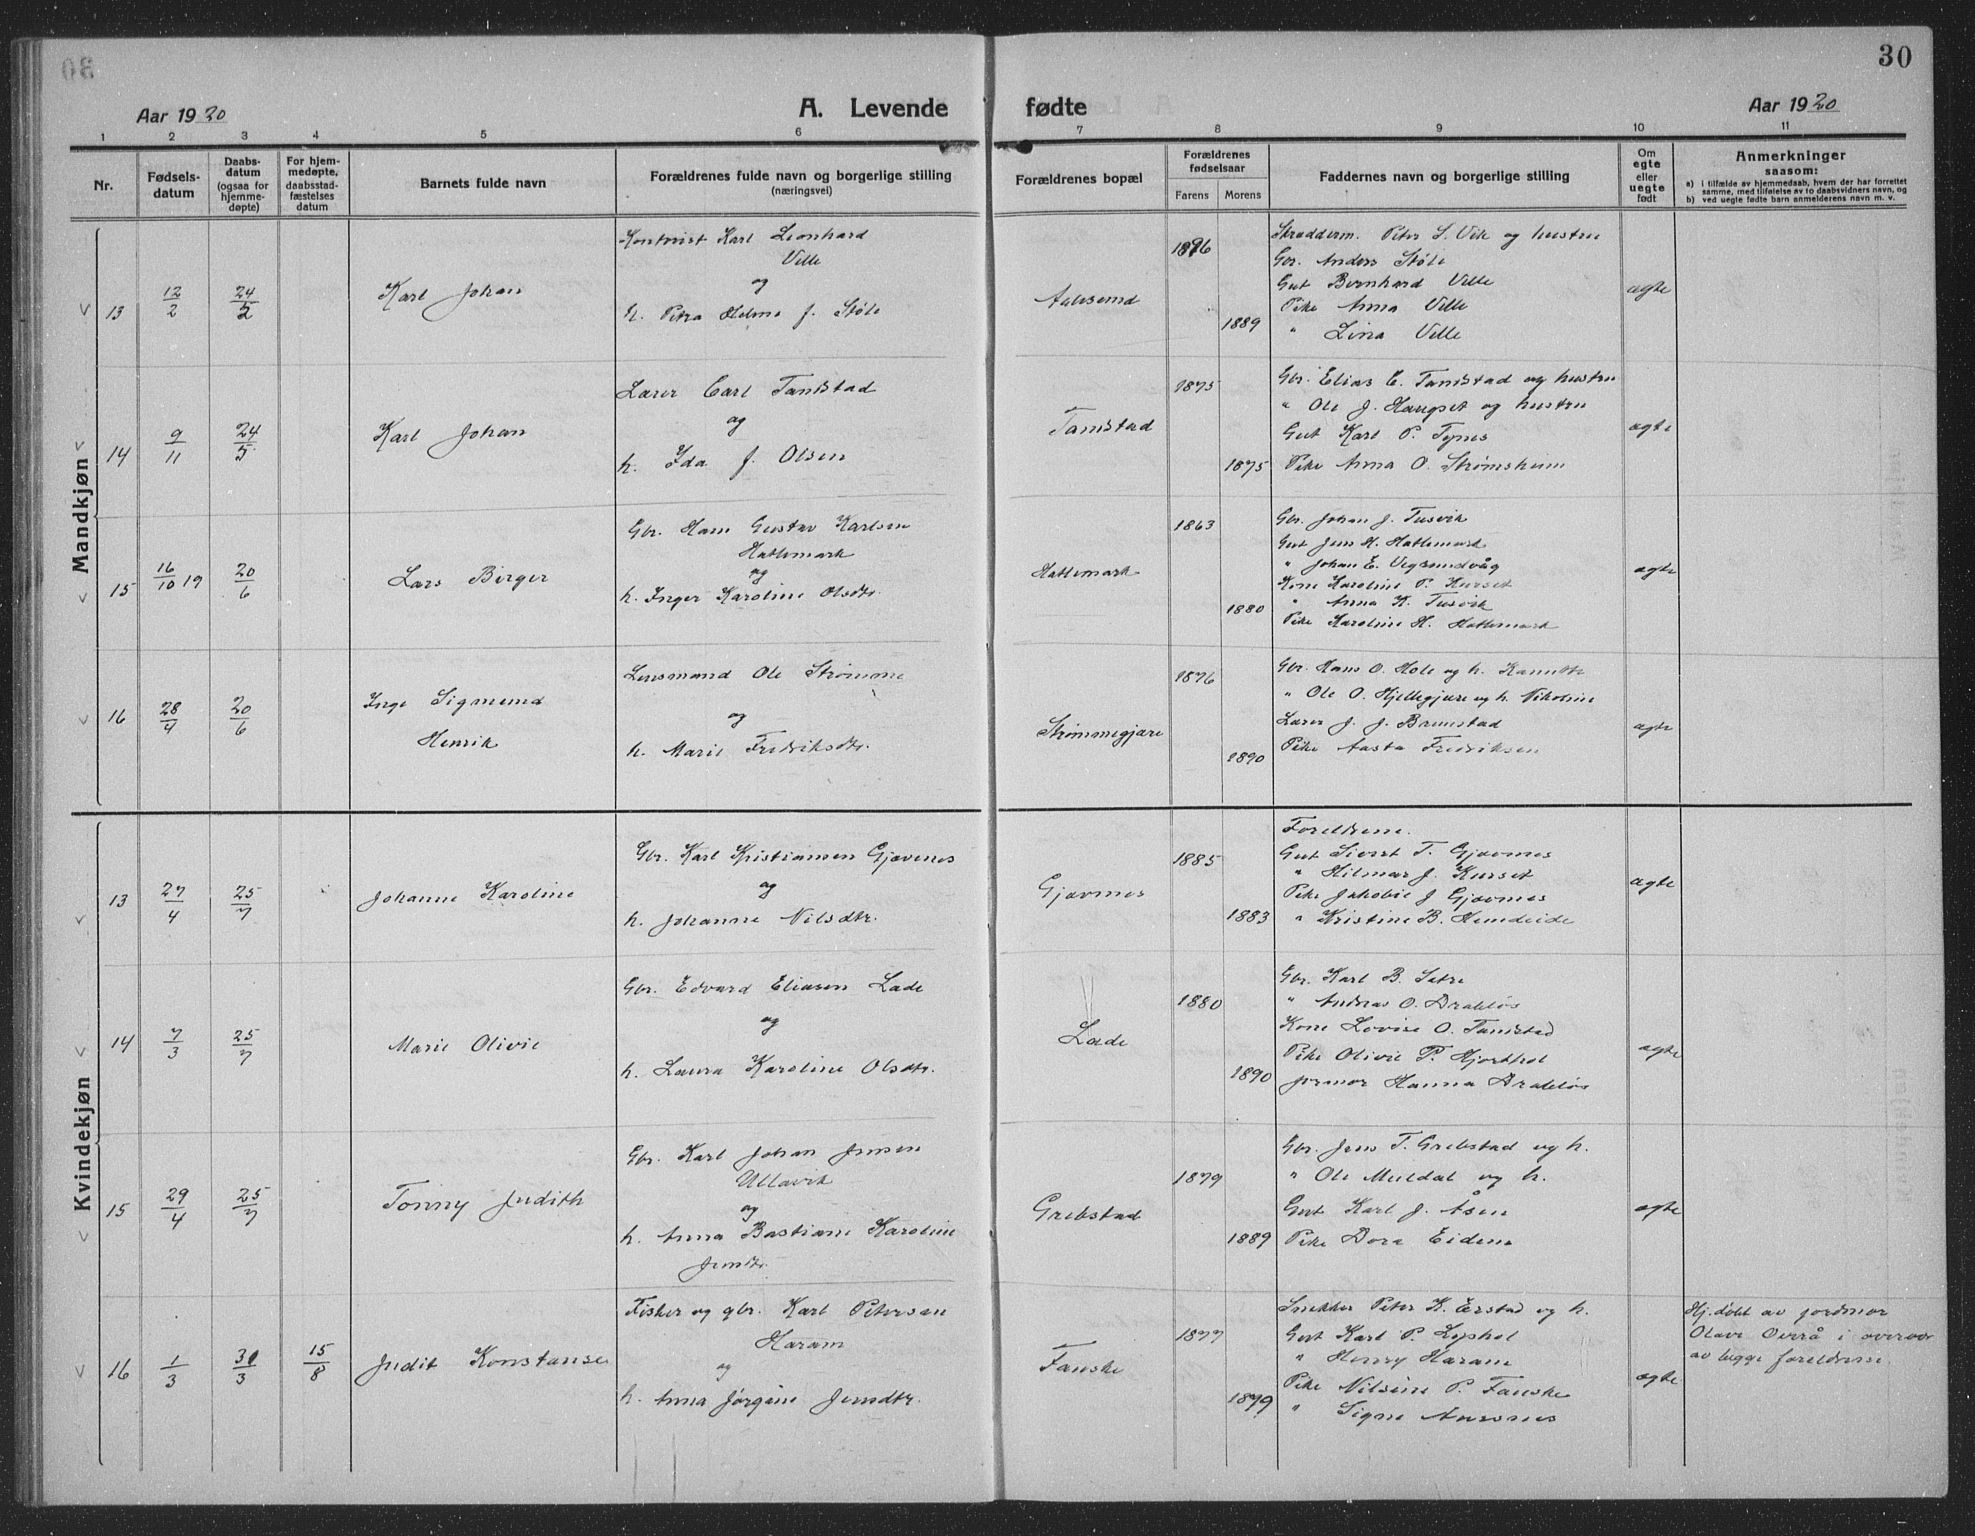 30
Aar 1920
A. Levende fødte
Aar 1920
1 2 3 4 5 6 7 8 9 10 11
Nr.
Fødsels-
datum
Daabs-
datum
(ogsaa for
hjemme-
døpte)
For hjem-
medøpte,
daabsstad-
fæstelses
datum
Barnets fulde navn
Forældrenes fulde navn og borgerlige stilling
(næringsvei)
Forældrenes bopæl
Forældrenes
fødselsaar
Farens Morens
Faddernes navn og borgerlige stilling
Om
egte
eller
uegte
født
Anmerkninger
saasom:
a) i tilfælde av hjemmedaab, hvem der har forrettet
samme, med tilføielse av to daabsvidners navn, og
b) ved uegte fødte barn anmelderens navn m. v.
Mandkjøn
13
12/2
24/5
Karl Johan
Kontorist Karl Leonhard
Velle
og
h. Petra Helma f. Støle
Aalesund
1896
1889
Skrædderm. Peter S. Vik og hustru
Gbr. Anders Støle
Gut Bernhard Velle
Pike Anna Velle
" Lina Velle
ægte
14
9/11
24/5
Karl Johan
Lærer Carl Tandstad
og
h. Ida f. Olsen
Tandstad
1875
1875
Gbr. Elias E. Tandstad og hustru
" Ole J. Haugset og hustru
Gut Karl P. Tynes
Pike Anna O. Strømsheim
ægte
15
16/10 19
20/6
Lars Birger
Gbr. Hans Gustav Karlsen
Hatlemark
og
h. Inger Karoline Olsdtr.
Hatlemark
1863
1880
Gbr. Johan J. Tusvik
Gut Jens H. Hatlemark
" Johan E. Vegsundvåg
Kone Karoline P. Kurset
" Anna K. Tusvik
Pike Karoline H. Hatlemark
ægte
16
28/4
20/6
Inge Sigmund
Henrik
Lensmand Ole Strømme
og
h. Marie Fredriksdtr.
Strømmegjære
1876
1890
Gbr. Hans O. Hole og h. Kanutte
" Ole O. Hjellegjære og h. Nikoline
Lærer J. J. Brunstad
Pike Aasta Fredriksen
ægte
Kvindekjøn
13
27/4
25/7
Johanne Karoline
Gbr. Karl Kristiansen Gjævenes
og
h. Johanne Nilsdtr.
Gjævnes
1885
1883
Foreldrene.
Gut Sivert T. Gjævnes
" Hilmar J. Kurset
Pike Jakobie J Gjævnes
" Kristine B. Hundeide
ægte
14
7/3
25/7
Marie Olivie
Gbr. Edvard Eliasen Lade
og
h. Laura Karoline Olsdtr.
Lade
1880
1890
Gbr. Karl B. Sætre
" Andreas O. Drabløs
Kone Lovise O. Tandstad
Pike Olivie P. Hjorthol
jormor Hanna Drabløs
ægte
15
29/4
25/7
Tonny Judith
Gbr. Karl Johan Jensen
Ullavik
og
h. Anna Bastiane Karoline
Jensdtr.
Grebstad
1879
1889
Gbr. Jens T. Grebstad og h.
" Ole Muldal og h.
Gut Karl J. Åsen
Pike Dora Eidem
ægte
16
1/3
31/3
15/8
Judit Konstanse
Fisker og gbr. Karl Petersen
Haram
og
h. Anna Jørgine Jensdtr.
Fauske
1877
1879
Snekker Peter K. Erstad og h.
Gut Karl P. Lyshol
" Henry Haram
Pike Nilsine P. Fauske
" Signe Aursnes
ægte
Hj. døbt av jordmor
Olave Overå i overvær
av begge foreldrene.